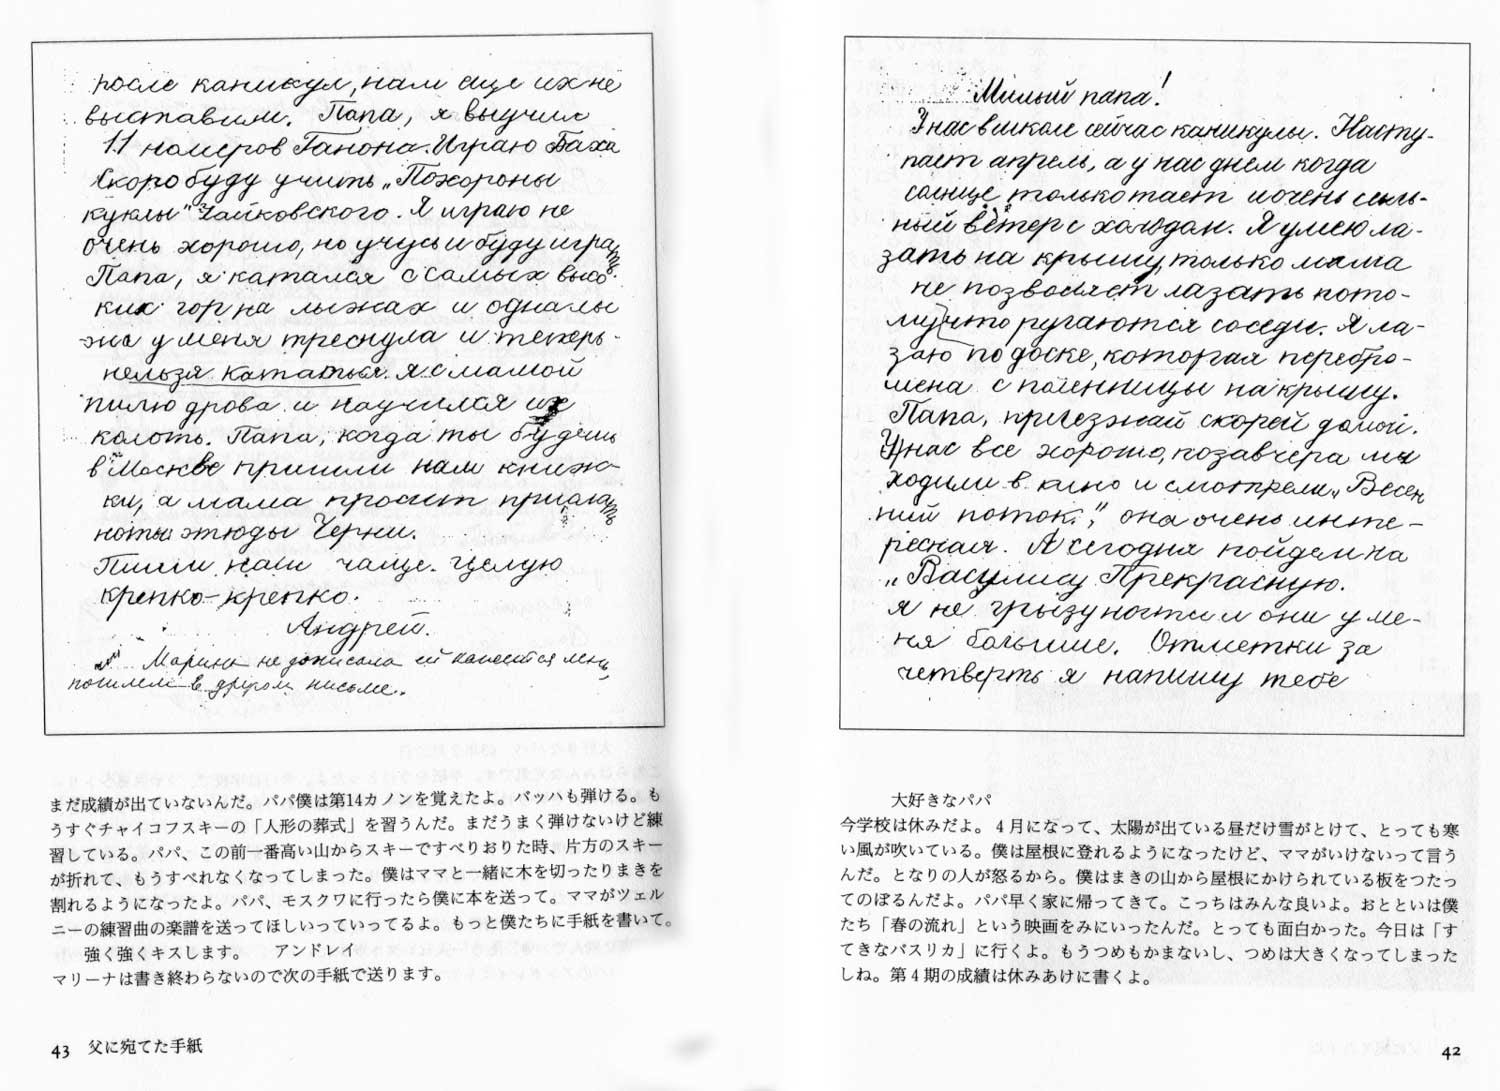 Милый папа!
У нас в школе сейчас каникулы. Насту-
пает апрель, а у нас днем когда
солнце только тает и очень силь-
ный ветер с холодом. Я умею ла-
зать на крышу, только мама
не позволяет лазать пото-
му что ругаются соседи. Я ла-
заю по доске, которая перебро-
шена с поленницы на крышу.
Папа, приезжай скорей домой.
У нас все хорошо, позавчера мы
ходили в кино и смотрели „Весен
ний поток", она очень инте-
ресная. А сегодня пойдем на
„Василису Прекрасную.
я не грызу ногти и они у ме-
ня большие. Отметки за
четверть я напишу тебе
大好きなパパ
今学校は休みだよ。４月になって、太陽が出ている昼だけ雪がとけて、とっても寒
い風が吹いている。僕は屋根に登れるようになったけど、ママがいけないって言う
んだ。となりの人が怒るから。僕はまきの山から屋根にかけられている板をつたっ
てのぼるんだよ。パパ早く家に帰ってきて。こっちはみんな良いよ。おとといは僕
たち「春の流れ」という映画をみにいったんだ。とっても面白かった。今日は「す
てきなバスリカ」に行くよ。もうつめもかまないし、つめは大きくなってしまった
しね。第４期の成績は休みあけに書くよ。
42
после каникул, нам еще их не
выставили. Папа, я выучил
11 номеров Ганона. Играю Баха
Скоро буду учить „Похороны
куклы" Чайковского. Я играю не
очень хорошо, но учусь и буду играть.
Папа, я катался с самых высо
ких гор на лыжах и одна лы
жа у меня треснула и теперь
нельзя кататься. я с мамой
пилю дрова и научился их
колоть. Папа, когда ты будешь
в Москве пришли нам книж-
ки, а мама просит прислать
ноты этюды Черни.
Пиши нам чаще. Целую
крепко-крепко.
Андрей.
Марина не дописала ей кажется лень,
пошлем в другом письме.
まだ成績が出ていないんだ。パパ僕は第14カノンを覚えたよ。バッハも弾ける。も
うすぐチャイコフスキーの「人形の葬式」を習うんだ。まだうまく弾けないけど練
習している。パパ、この前一番高い山からスキーですべりおりた時、片方のスキー
が折れて、もうすべれなくなってしまった。僕はママと一緒に木を切ったりまきを
割れるようになったよ。パパ、モスクワに行ったら僕に本を送って。ママがツェル
ニーの練習曲の楽譜を送ってほしいっていってるよ。もっと僕たちに手紙を書いて。
強く強くキスします。　アンドレイ
マリーナは書き終わらないので次の手紙で送ります。
43 父に宛てた手紙